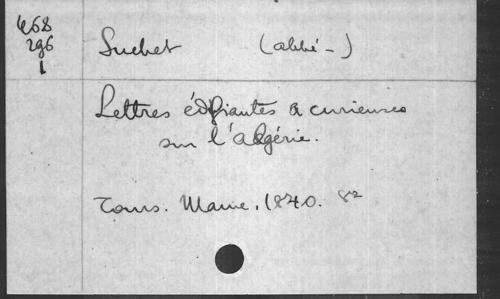 468
296
1
Suchet (abbé -)
Lettres édifiantes & curieuses
sur l'algérie.
Tours. Mame. 1840. 8º